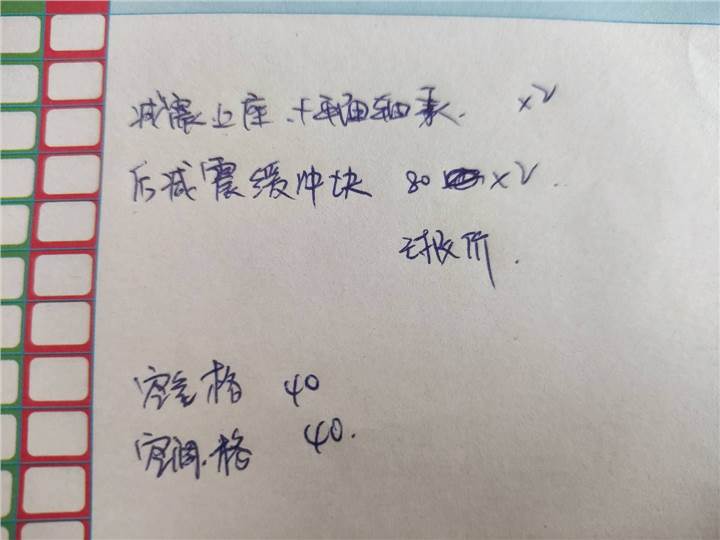 减震上座 + 轴承 x2
后减震缓冲块 80 x2.
未报价.
空气格 40
空调格 40.